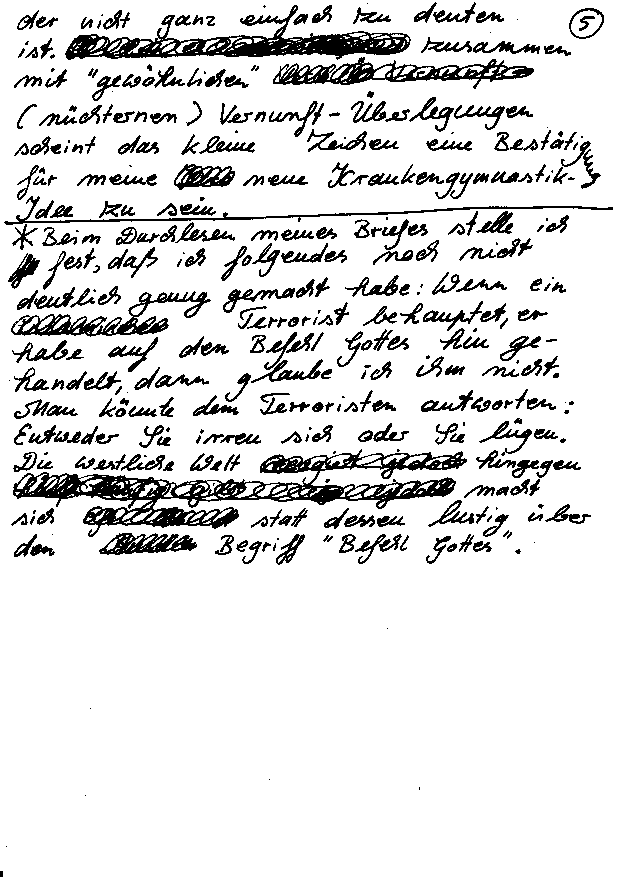 der nicht ganz einfach zu deuten
5
ist. zusammen
mit "gewöhnlichen"
(nüchternen) Vernunft-Überlegungen
scheint das kleine Zeichen eine Bestätigung
für meine neue Krankengymnastik-
Idee zu sein.
* Beim Durchlesen meines Briefes stelle ich
fest, daß ich folgendes noch nicht
deutlich genug gemacht habe: Wenn ein
Terrorist behauptet, er
habe auf den Befehl Gottes hin ge-
handelt, dann glaube ich ihm nicht.
Man könnte dem Terroristen antworten:
Entweder Sie irren sich oder Sie lügen.
Die westliche Welt hingegen
macht
sich statt dessen lustig über
den Begriff "Befehl Gottes".